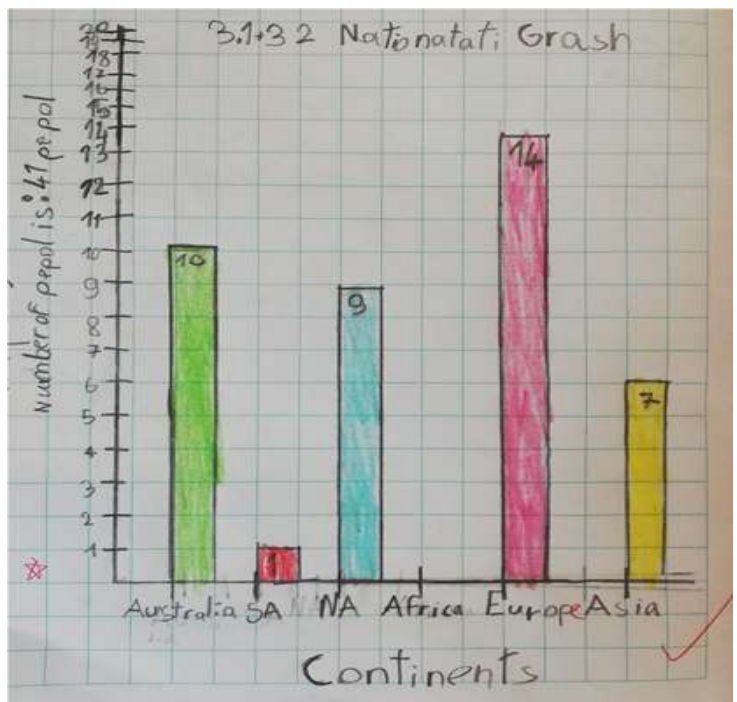 3.1+3 2 Nationatati Grash
Number of pepol is: 41 pepol
20
19
18
17
16
15
14
13
12
11
10
9
8
7
6
5
4
3
2
1
10
1
9
14
7
Australia SA NA Africa Europe Asia
Continents